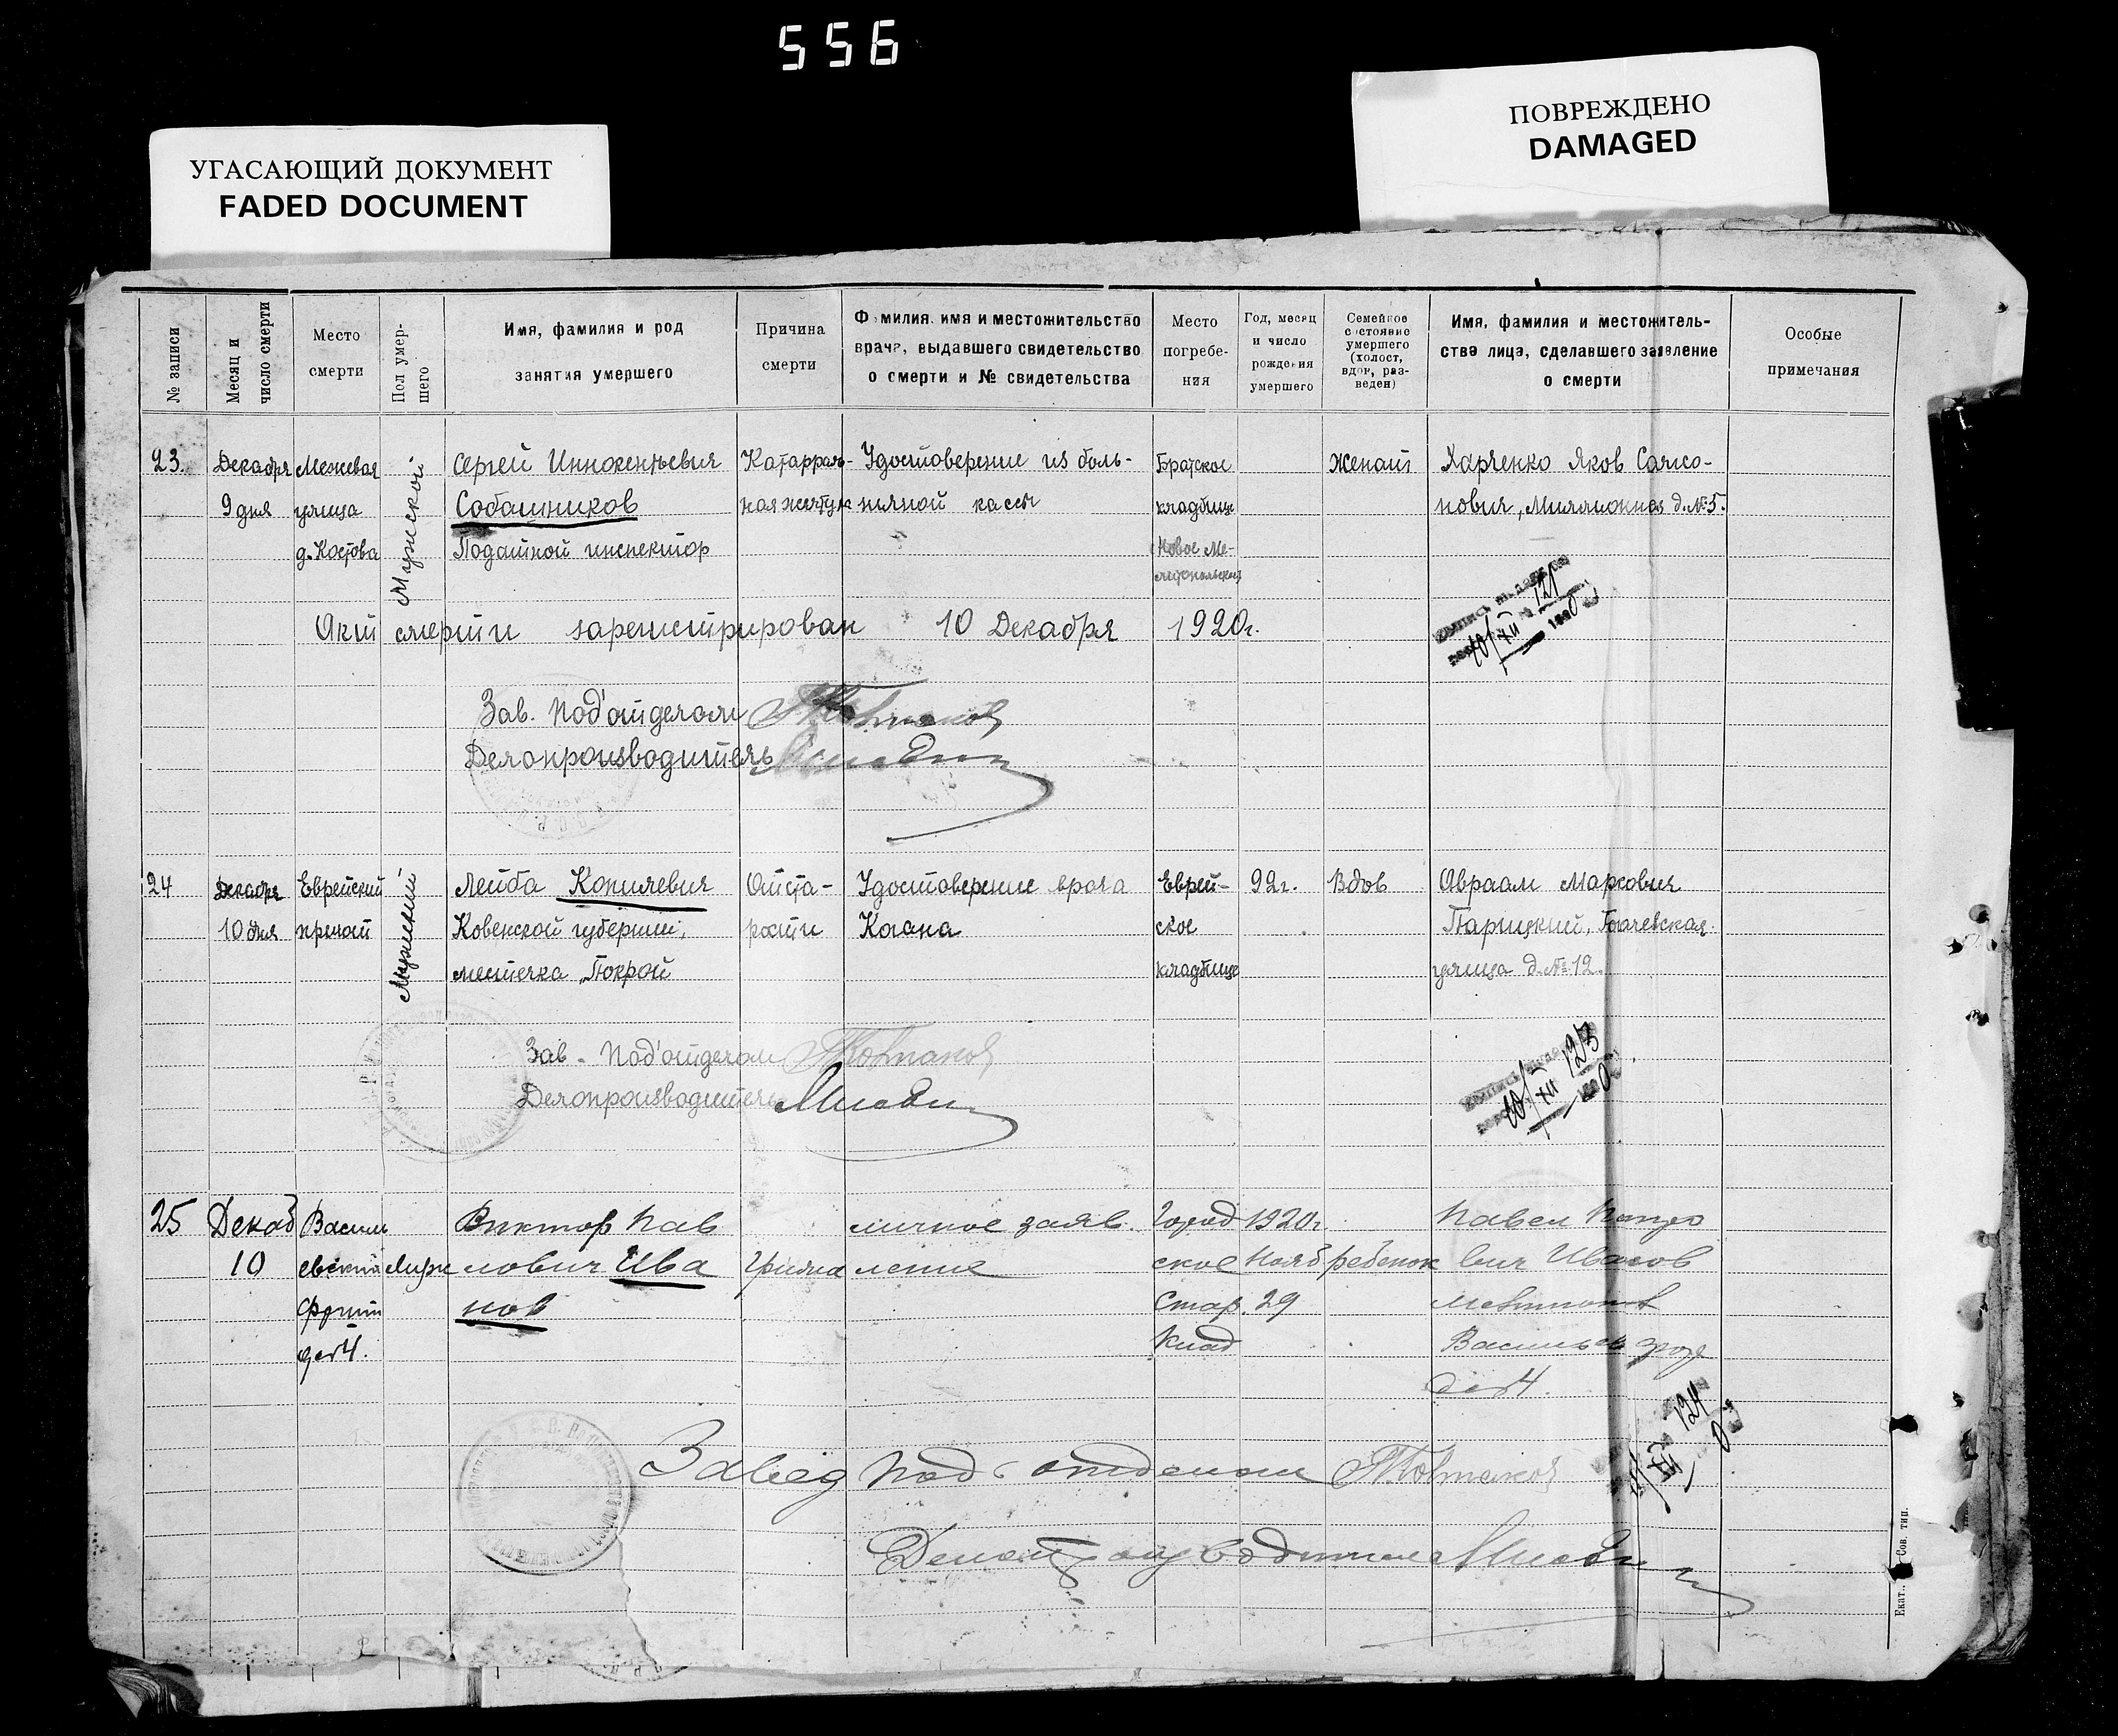 556
УГАСАЮЩИЙ ДОКУМЕНТ
FADED DOCUMENT
ПОВРЕЖДЕНО
DAMAGED
№ записи
Месяц и
число смерти
Место
смерти
Пол умер-
шего
Имя, фамилия и род
занятия умершего
Причина
смерти
Фамилия, имя и местожительство
врача, выдавшего свидетельство
о смерти и № свидетельства
Место
погребе-
ния
Год, месяц
и число
рождения
умершего
Семейное
состояние
умершего
(холост,
вдов, раз-
веден)
Имя, фамилия и местожитель-
ства лица, сделавшего заявление
о смерти
Особые
примечания
23.
Декабря
9 дня
Межевая
улица
д. Костова
Мужской
Сергей Иннокентьевич
Собашников
Податной инспектор
Катарраль-
ная желтух
Удостоверение из боль-
ничной кассы
Братское
кладбище
Новое Ме-
Женат
Харченко Яков Самсо-
нович, Миллионная д. № 5.
Акт смерти зарегистрирован 10 Декабря 1920г.
121
10/XII
Зав. Под'отделом
Делопроизводитель
24
Декабря
10 дня
Еврейский
приют
Мужской
Лейба Копилевич
Ковенской губернии,
местечка „Покрой
От ста-
рости
Удостоверение врача
Когана
Еврей-
ское
кладбище
92г.
Вдов
Авраам Маркович
Парицкий,
улица д. № 12.
123
10/XII
Зав. Под'отделом
Делопроизводитель
25
Декаб
10
Василь
евский
дом 4.
Муж
Виктор Пав
лович Ива
нов
личное заяв
ление
Город
ское
Стар.
Клад
1920г.
Нояб
29
ребенок
Павел
вич Иванов
дом 4.
124
XII
Завед под. отделом
Делопроизводитель
Екат., Сов. тип.